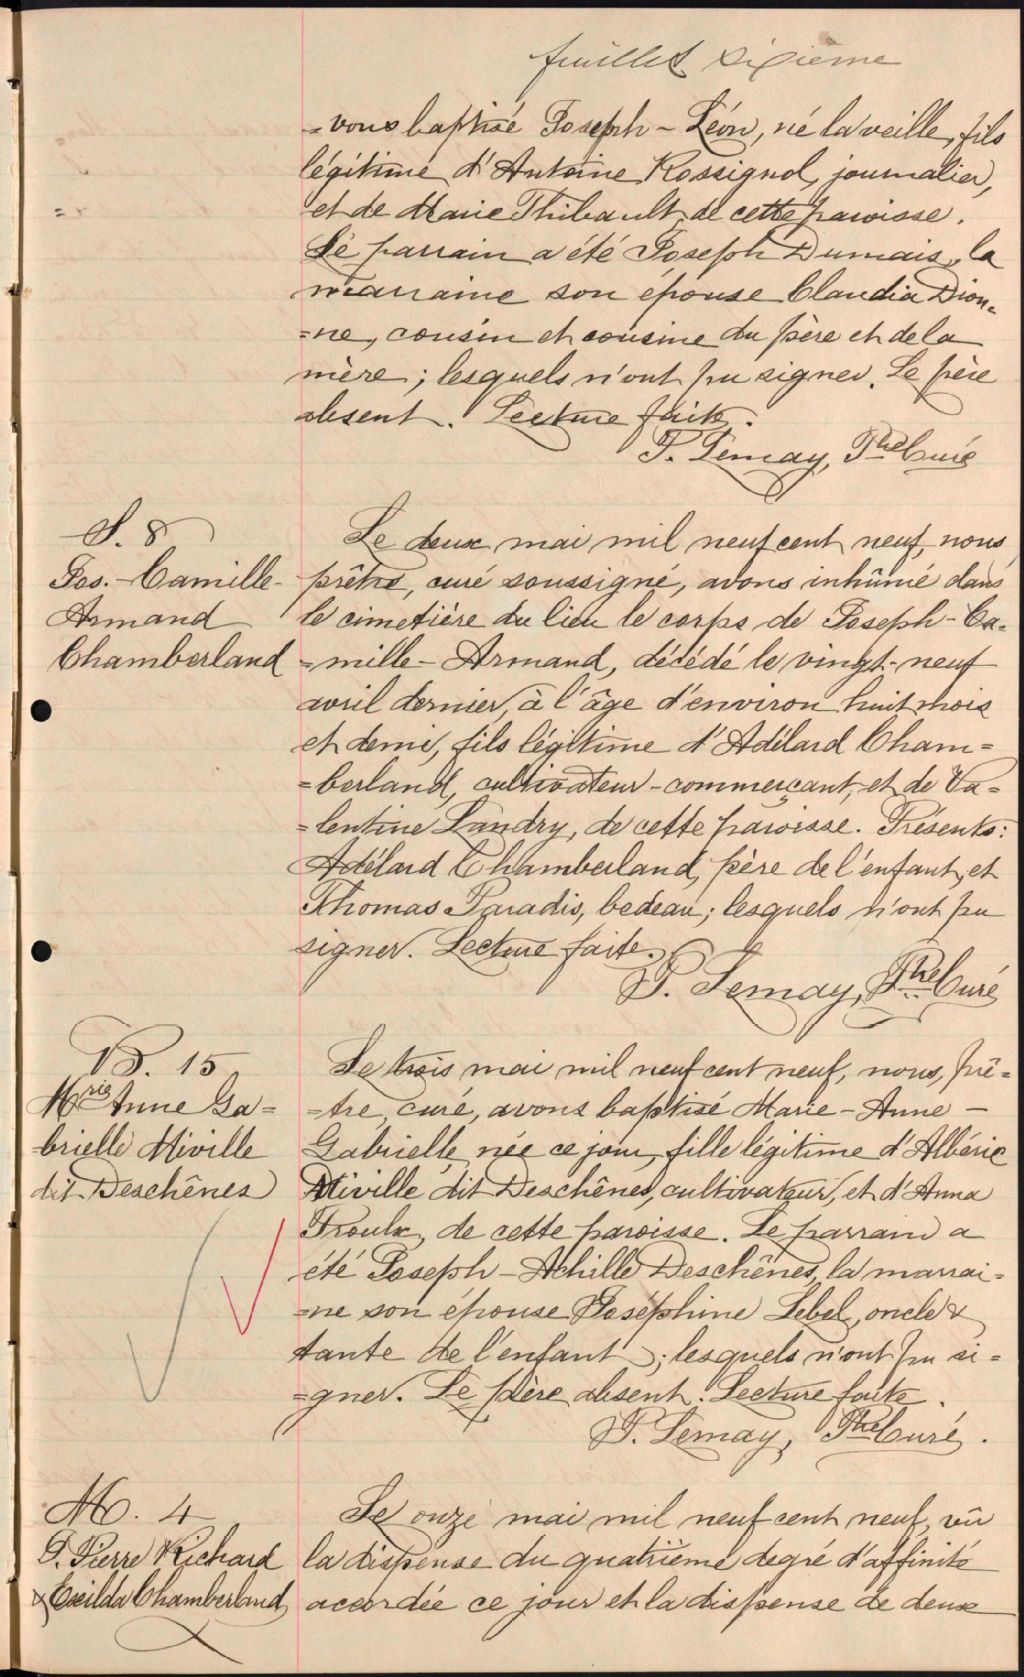 feuillet sixième
=vous baptisé Joseph-Léon, né la veille, fils
légitime d'Antoine Rossignol, journalier,
et de Marie Thibault, de cette paroisse.
Le parrain a été Joseph Dumais, la
marraine son épouse Claudia Dion=
=ne, cousin et cousine du père et de la
mère; lesquels n'ont pu signer. Le père
absent. Lecture faite.
P. Lemay, Ptre Curé
S. 8
Jos.-Camille-
Armand
Chamberland
Le deux mai mil neuf cent neuf, nous
prêtre, curé soussigné, avons inhumé dans
le cimetière du lieu le corps de Joseph-Ca=
=mille-Armand, décédé le vingt-neuf
avril dernier, à l'âge d'environ huit mois
et demi, fils légitime d'Adélard Cham=
=berland, cultivateur-commerçant, et de Va=
=lentine Landry, de cette paroisse. Présents:
Adélard Chamberland, père de l'enfant, et
Thomas Paradis, bedeau; lesquels n'ont pu
signer. Lecture faite.
P. Lemay, Ptre Curé
B. 15
Mrie Anne Ga=
brielle Miville
dit Deschênes
Le trois mai mil neuf cent neuf, nous, prê=
=tre, curé, avons baptisé Marie-Anne-
Gabrielle, née ce jour, fille légitime d'Albéric
Miville dit Deschênes, cultivateur, et d'Anna
Proulx, de cette paroisse. Le parrain a
été Joseph-Achille Deschênes, la marrai=
=ne son épouse Joséphine Lebel, oncle &
tante de l'enfant; lesquels n'ont pu si=
=gner. Le père absent. Lecture faite.
P. Lemay, Ptre Curé.
M. 4
J. Pierre Richard
& Exilda Chamberland
Le onze mai mil neuf cent neuf, vû
la dispense du quatrième degré d'affinité
accordée ce jour et la dispense de deux